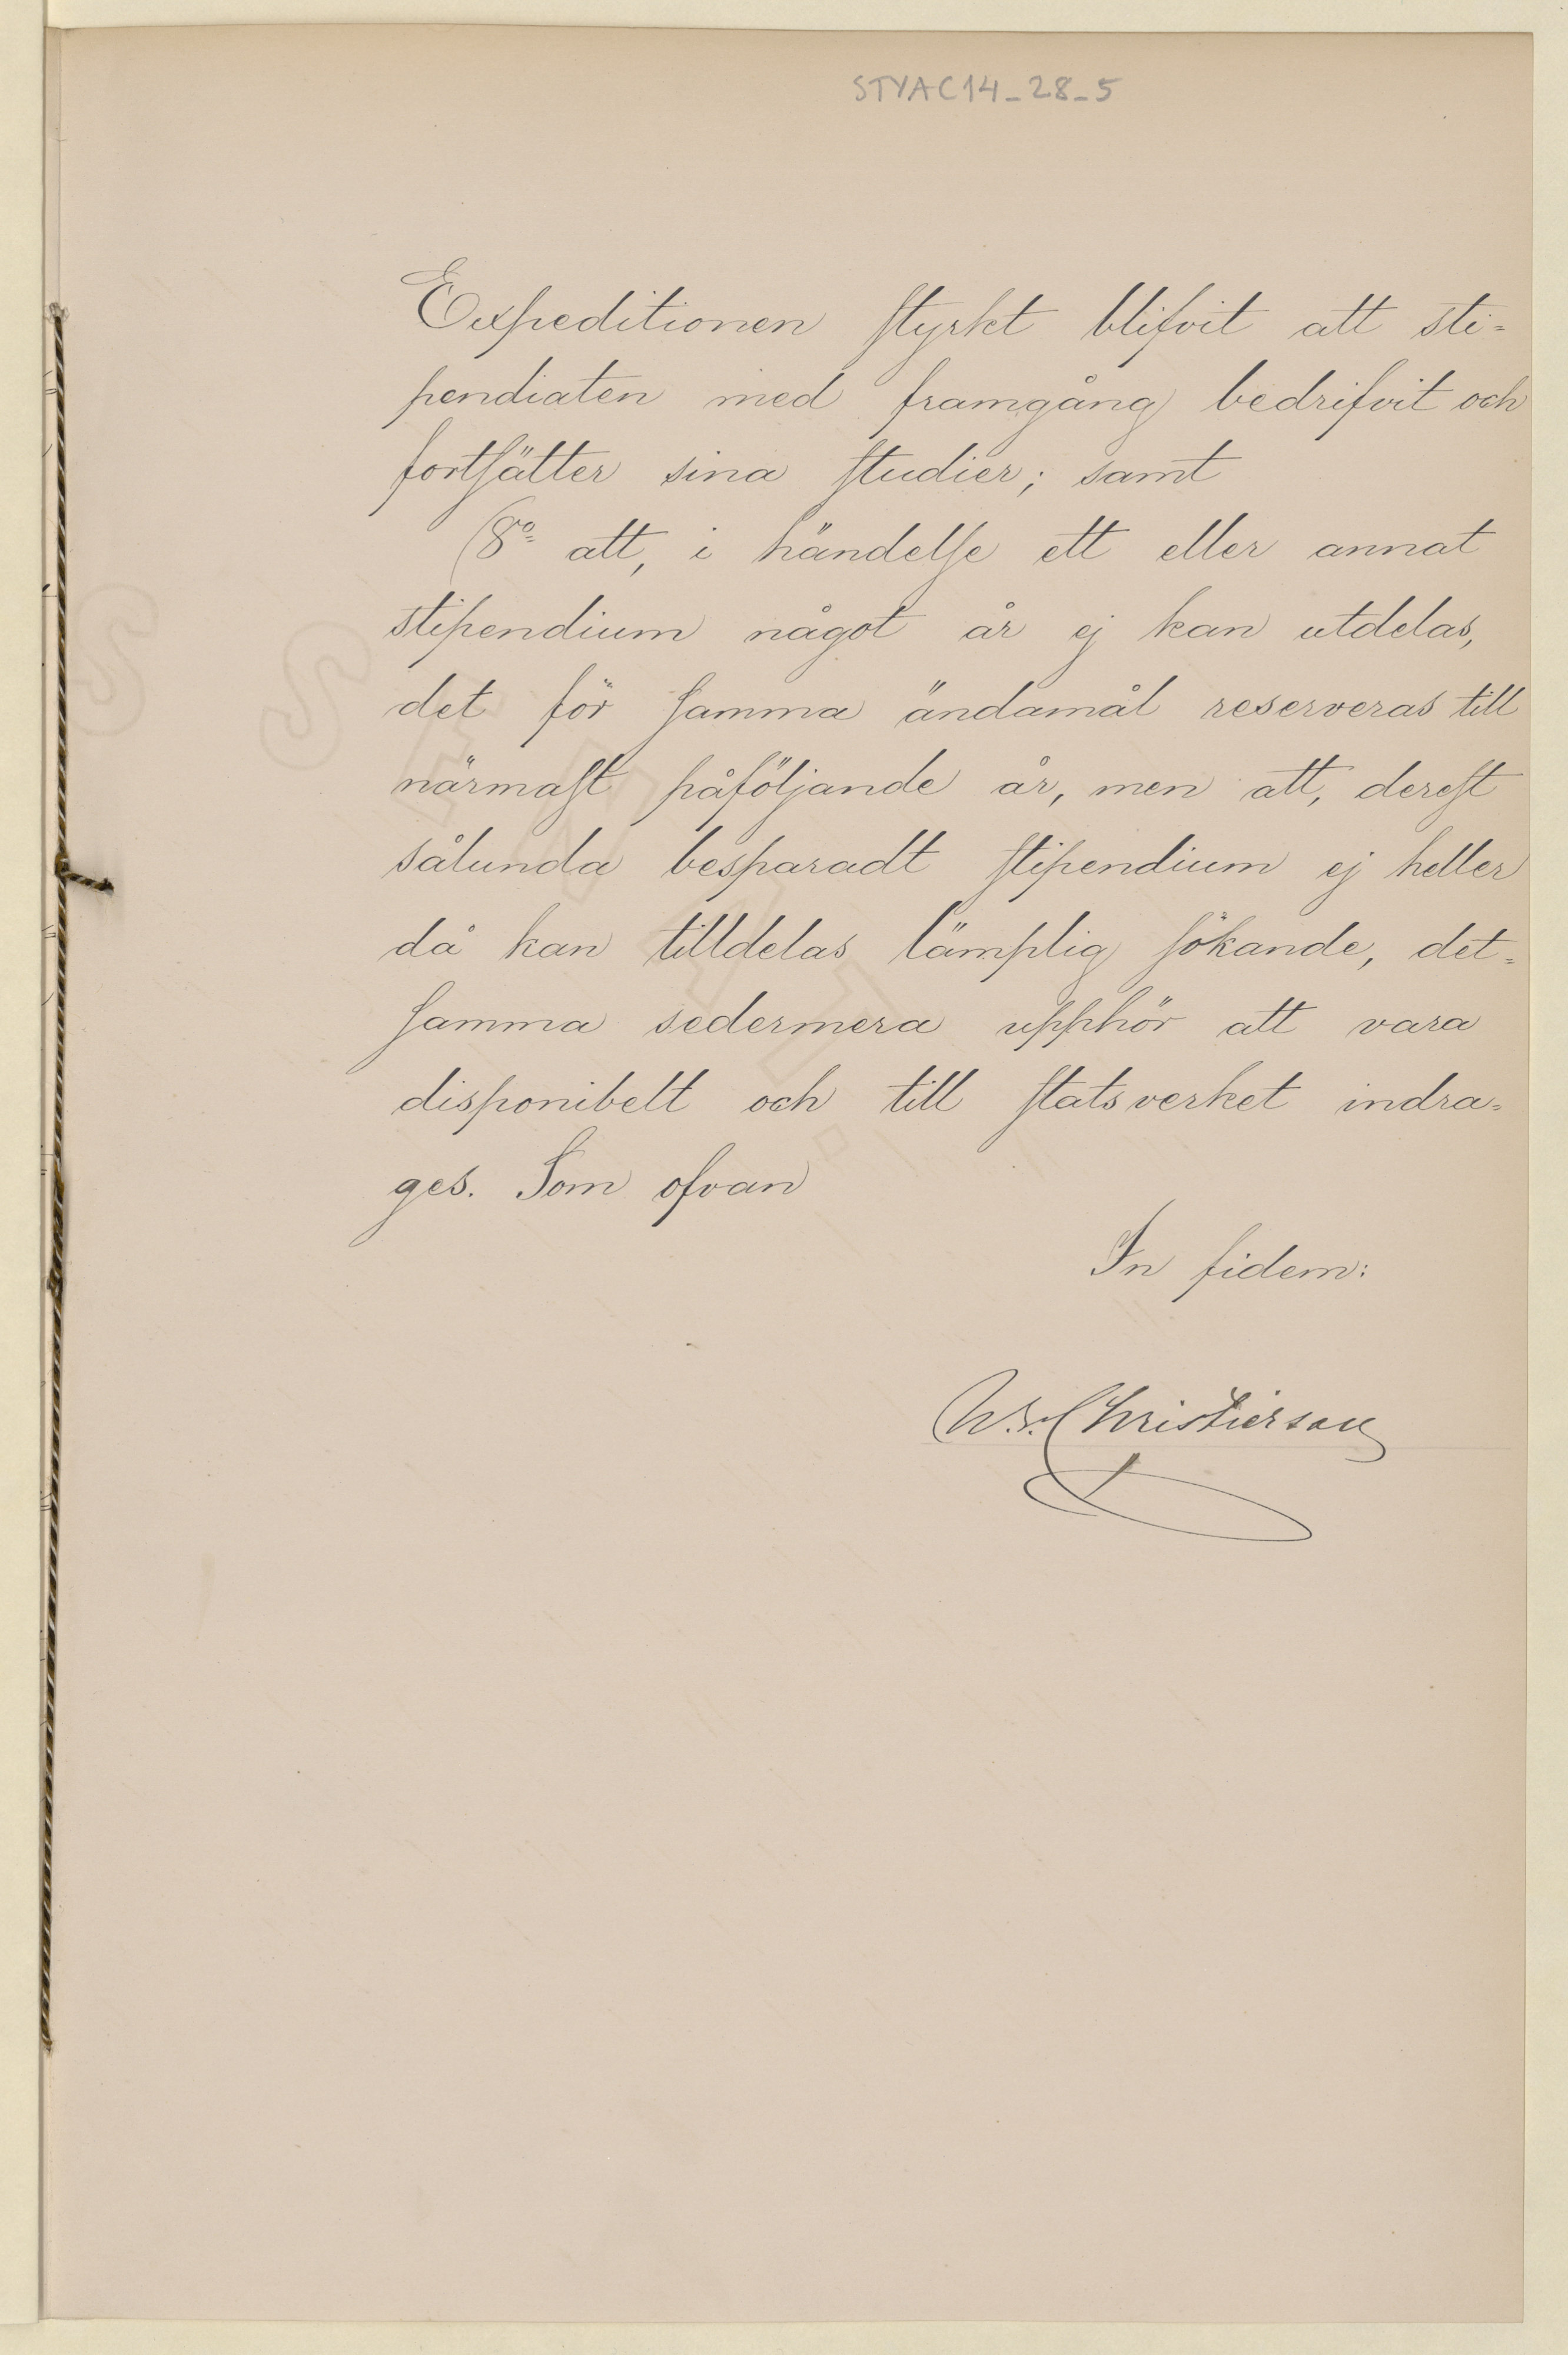 STYAC14_28_5
Expeditionen styrkt blifvit att sti=
pendiaten med framgång bedrifvit och
fortsätter sina studier; samt
(8º att, i händelse ett eller annat
stipendium något år ej kan utdelas,
det för samma ändamål reserveras till
närmast påföljande år, men att, derest
sålunda besparadt stipendium ej heller
då kan tilldelas lämplig sökande, det=
samma sedermera upphör att vara
disponibelt och till statsverket indra=
ges. Som ofvan
In fidem:
W.v.Christierson